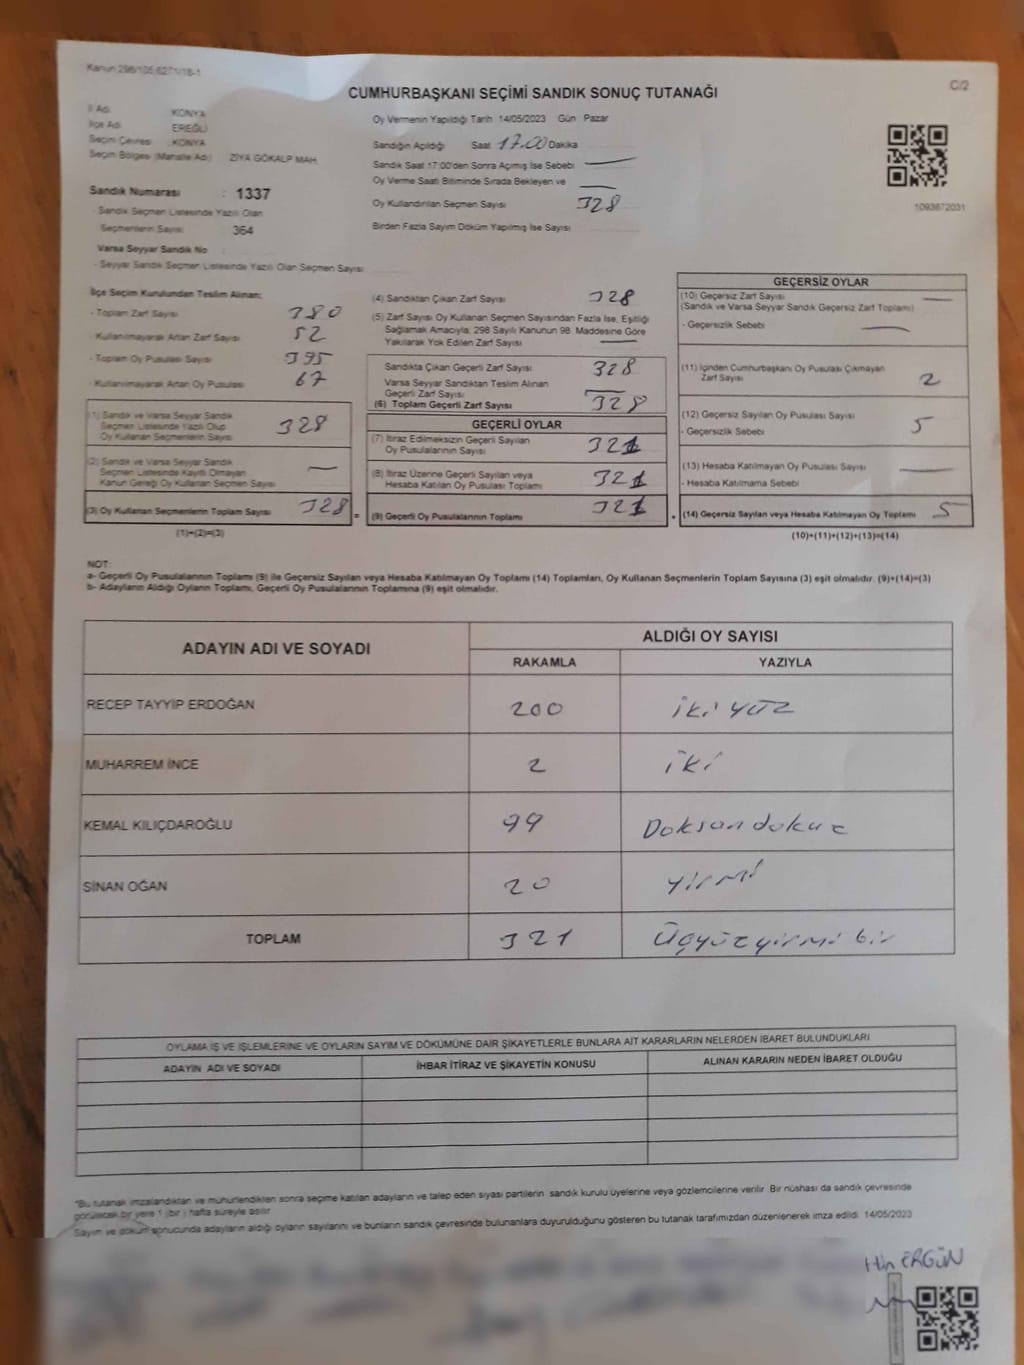 Kanun:298/105,6271/18-1
C/2
CUMHURBAŞKANI SEÇİMİ SANDIK SONUÇ TUTANAĞI
İl Adı KONYA
İlçe Adı EREĞLİ
Seçim Çevresi : KONYA
Seçim Bölgesi (Mahalle Adı) ZİYA GÖKALP MAH.
Sandık Numarası : 1337
- Sandık Seçmen Listesinde Yazılı Olan
Seçmenlerin Sayısı 364
Varsa Seyyar Sandık No
- Seyyar Sandık Seçmen Listesinde Yazılı Olan Seçmen Sayısı
Oy Vermenin Yapıldığı Tarih 14/05/2023 Gün Pazar
Sandığın Açıldığı Saat 17.00 Dakika
Sandık Saat 17:00'den Sonra Açımış İse Sebebi —
Oy Verme Saati Bitiminde Sırada Bekleyen ve —
Oy Kullandırılan Seçmen Sayısı 328
Birden Fazla Sayım Döküm Yapılmış İse Sayısı
1093672031
İlçe Seçim Kurulundan Teslim Alınan;
- Toplam Zarf Sayısı 380
- Kullanılmayarak Artan Zarf Sayısı 52
- Toplam Oy Pusulası Sayısı 395
- Kullanılmayarak Artan Oy Pusulası 67
(1) Sandık ve Varsa Seyyar Sandık
Seçmen Listesinde Yazılı Olup
Oy Kullanan Seçmenlerin Sayısı 328
(2) Sandık ve Varsa Seyyar Sandık
Seçmen Listesinde Kayıtlı Olmayan
Kanun Gereği Oy Kullanan Seçmen Sayısı —
(3) Oy Kullanan Seçmenlerin Toplam Sayısı 328
(1)+(2)=(3)
(4) Sandıktan Çıkan Zarf Sayısı 328
(5) Zarf Sayısı Oy Kullanan Seçmen Sayısından Fazla İse, Eşitliği
Sağlamak Amacıyla, 298 Sayılı Kanunun 98. Maddesine Göre
Yakılarak Yok Edilen Zarf Sayısı —
Sandıkta Çıkan Geçerli Zarf Sayısı 328
Varsa Seyyar Sandıktan Teslim Alınan
Geçerli Zarf Sayısı —
(6) Toplam Geçerli Zarf Sayısı 328
GEÇERLİ OYLAR
(7) İtiraz Edilmeksizin Geçerli Sayılan
Oy Pusulalarının Sayısı 321
(8) İtiraz Üzerine Geçerli Sayılan veya
Hesaba Katılan Oy Pusulası Toplamı 321
= (9) Geçerli Oy Pusulalarının Toplamı 321
GEÇERSİZ OYLAR
(10) Geçersiz Zarf Sayısı —
(Sandık ve Varsa Seyyar Sandık Geçersiz Zarf Toplamı)
- Geçersizlik Sebebi —
(11) İçinden Cumhurbaşkanı Oy Pusulası Çıkmayan
Zarf Sayısı 2
(12) Geçersiz Sayılan Oy Pusulası Sayısı 5
- Geçersizlik Sebebi
(13) Hesaba Katılmayan Oy Pusulası Sayısı —
- Hesaba Katılmama Sebebi
+ (14) Geçersiz Sayılan veya Hesaba Katılmayan Oy Toplamı 5
(10)+(11)+(12)+(13)=(14)
NOT:
a- Geçerli Oy Pusulalarının Toplamı (9) ile Geçersiz Sayılan veya Hesaba Katılmayan Oy Toplamı (14) Toplamları, Oy Kullanan Seçmenlerin Toplam Sayısına (3) eşit olmalıdır. (9)+(14)=(3)
b- Adayların Aldığı Oyların Toplamı, Geçerli Oy Pusulalarının Toplamına (9) eşit olmalıdır.
ADAYIN ADI VE SOYADI
ALDIĞI OY SAYISI
RAKAMLA YAZIYLA
RECEP TAYYİP ERDOĞAN 200 iki yüz
MUHARREM İNCE 2 iki
KEMAL KILIÇDAROĞLU 99 Doksan dokuz
SİNAN OĞAN 20 yirmi
TOPLAM 321 Üçyüzyirmi bir
OYLAMA İŞ VE İŞLEMLERİNE VE OYLARIN SAYIM VE DÖKÜMÜNE DAİR ŞİKAYETLERLE BUNLARA AİT KARARLARIN NELERDEN İBARET BULUNDUKLARI
ADAYIN ADI VE SOYADI İHBAR İTİRAZ VE ŞİKAYETİN KONUSU ALINAN KARARIN NEDEN İBARET OLDUĞU
*Bu tutanak imzalandıktan ve mühürlendikten sonra seçime katılan adayların ve talep eden siyasi partilerin sandık kurulu üyelerine veya gözlemcilerine verilir. Bir nüshası da sandık çevresinde
görülecek bir yere 1 (bir) hafta süreyle asılır.
Sayım ve döküm sonucunda adayların aldığı oyların sayılarını ve bunların sandık çevresinde bulunanlara duyurulduğunu gösteren bu tutanak tarafımızdan düzenlenerek imza edildi. 14/05/2023
ERGÜN